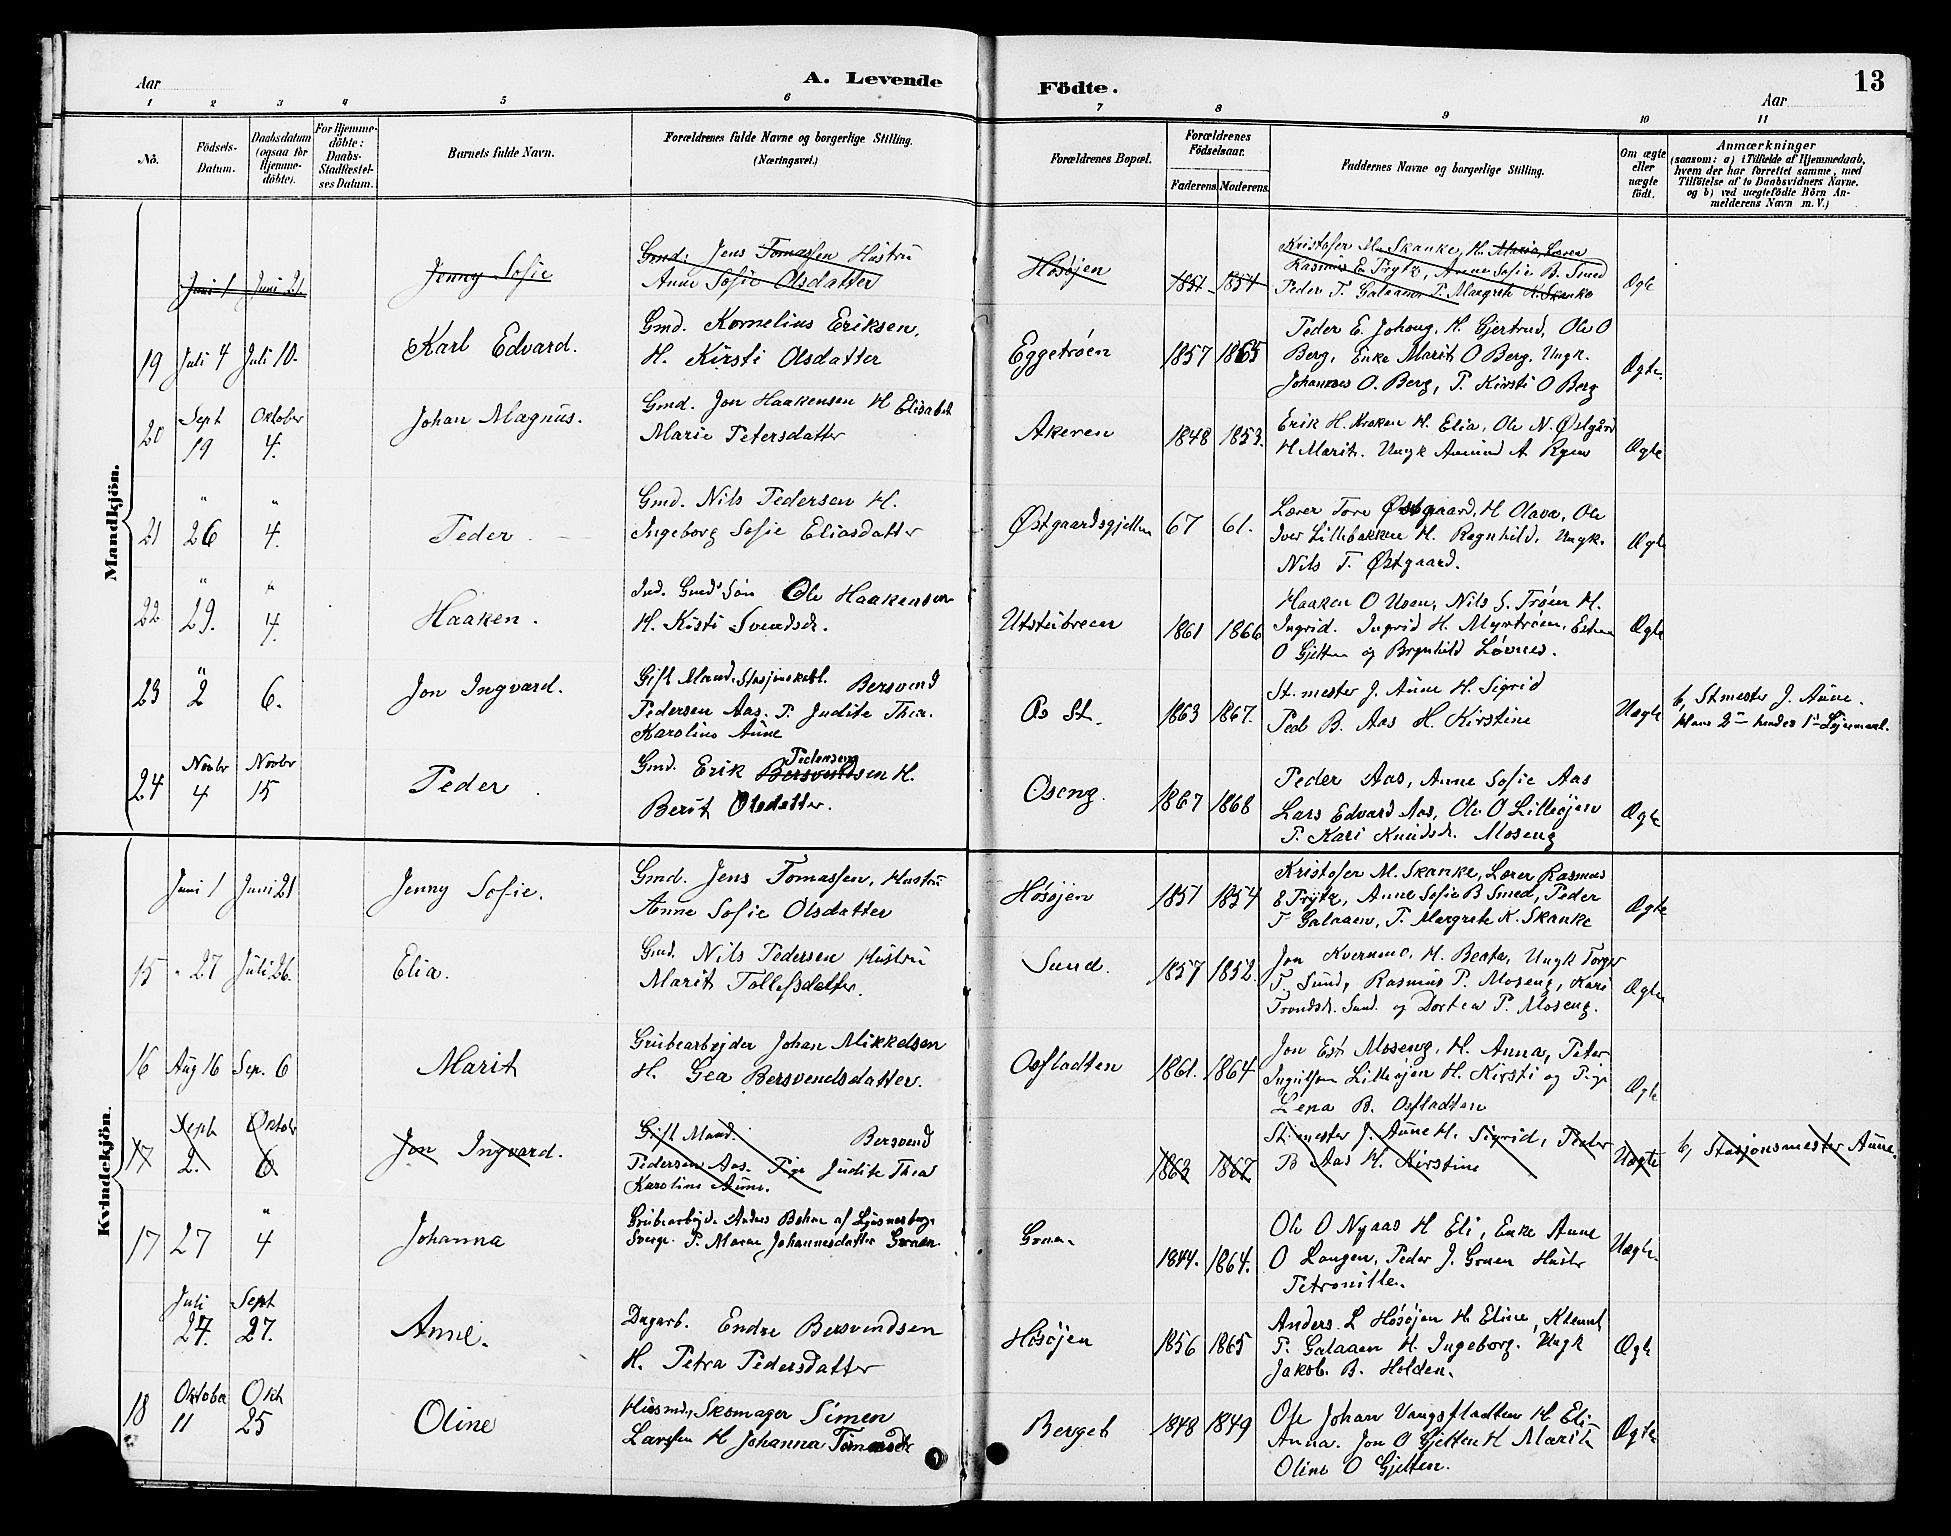 Aar
A. Levende
Födte.
13
Aar
1 2 3 4 5 6 7 8 9 10 11
No.
Födsels-
Datum.
Daabsdatum
(ogsaa for
Hjemme-
döbte).
For Hjemme-
döbte:
Daabs-
Stadfæstel-
ses Datum.
Barnets fulde Navn.
Forældrenes fulde Navne og borgerlige Stilling.
(Næringsvei.)
Forældrenes Bopæl.
Forældrenes
Födselsaar.
Faderens. Moderens.
Faddernes Navne og borgerlige Stilling.
Om ægte
eller
uægte
födt.
Anmærkninger
(saasom: a) i Tilfælde af Hjemmedaab,
hvem der har forrettet samme, med
Tilföielse af to Daabsvidners Navne.
og b) ved uægtefödte Börn An-
melderens Navn m. V.)
Mandkjön.
Juni 1 Juni 21
Jenny Sofie
Gmd. Jens Tomassen Hustru
Anne Sofie Olsdatter
Høsøjen
1851 1854
Kristofer M. Skanke, H. Maria, Lærer
Rasmus E Trytz, Anne Sofie B. Smed
Peder T. Galaaen P. Margrete K. Skanke
Ægte
19 Juli 4 Juli 10.
Karl Edvard.
Gmd. Kornelius Eriksen,
H. Kirsti Olsdatter
Eggetrøen
1857 1865
Peder E. Johoug, H. Gjertrud, Ole O
Berg, Enke Marit O Berg. Ungk.
Johannes O. Berg, P. Kirsti O Berg
Ægte.
20 Sept 19 Oktober 4.
Johan Magnus.
Gmd. Jon Haakensen H Elisabet
Marie Petersdatter
Akeren
1848 1853.
Erik H. Kroken H. Elia, Ole N. Østgård
H Marit. Ungk Amund A Ryen
Ægte
21 " 26 " 4.
Peder
Gmd. Nils Pedersen H.
Ingeborg Sofie Eliasdatter
Østgaardsgjelten
67 61.
Lærer Tore Østgaard, H Olava, Ole
Iver Lillebakken H. Ragnhild, Ungk.
Nils T. Østgaard.
Ægte
22 " 29. " 4.
Haaken.
Ind. Gmd's Søn Ole Haakensen
H. Kisti Svendsd.
Utstubroen
1861 1866
Haaken O Usen, Nils S. Trøen H.
Ingrid. Ingrid H. Myrtrøen, Esten
O Gjelten og Brynhild Løvnes.
Ægte
23 " 2 6.
Jon Ingvard.
Gift Mand, Stasjonskarl. Bersvend
Pedersen Aas. P. Judite Thea
Karoline Aune
Os St.
1863 1867.
St.mester J. Aune H. Sigrid
Ped B. Aas H. Kirstine
Uægte
b, Stmester J. Aune.
Hans 2- hendes 1- Lejermaal.
24 Novbr 4 Novbr 15
Peder
Pedersen
Gmd. Erik Bersvendsen H.
Berit Olsdatter.
Oseng.
1867 1868
Peder Aas, Anne Sofie Aas
Lars Edvard Aas, Ole O Lilleøjen
P. Kari Knudsd. Moseng
Ægte
Kvindekjön.
Juni 1 Juni 21
Jenny Sofie.
Gmd. Jens Tomassen, Hustru
Anne Sofie Olsdatter
Høsøjen
1851 1854
Kristofer M. Skanke, Lærer Rasmus
E Trytz, Anne Sofie B Smed, Peder
T Galaaen, P. Margrete K. Skanke
Ægte
15 " 27 Juli 26.
Elia.
Gmd. Nils Pedersen Hustru
Marit Tollefsdatter.
Sund.
1857 1852.
Jon Kvernmo, H. Beata, Ungk Torger
T. Sund, Rasmus P. Moseng, Kari
Trondsd. Sund og Dortea P. Moseng.
Ægte
16 Aug 16 Sep. 6
Marit
Grubearbejder Johan Mikkelsen
H. Gea Bersvendsdatter.
Osfladten
1861. 1864
Jon Est. Moseng, H. Anna, Peter
Ingvaldsen Lilleøjen H. Kirsti og Pige
Lena B. Osfladten
Ægte
17 Sept 2. Oktobr 6
Jon Ingvard.
Gift Mand. Bersvend
Pedersen Aas. Pige Judite Thea
Karoline Aune.
1863 1867
St.mester J. Aune H. Sigrid, Peder
B Aas H. Kirstine
Uægte
b, Stasjonsmester Aune.
17 27 " 4
Johanna
Grubearbejd. Anders Bohm af Ljusnesberg
Sverge. P. Maren Johannesdatter Groaen.
Groaen.
1844. 1864.
Ole O Nyaas H Eli, Enke Anne
O Langen, Peder J. Groaen Hustr
Petronille.
Uægte.
Juli 27. Sept 27.
Anne.
Dagarb. Endre Bersvendsen
H. Petra Pedersdatter
Høsøjen
1856 1865
Anders L Høsøjen H Eline, Klemet
P. Galaaen H. Ingeborg. Ungk
Jakob B. Holden.
Ægte
18 Oktober 11 Okt 25
Oline
Husmd, Skomager Simen
Larssen H Johanna Simensdt
Berget
1848 1849
Ole Johan Vangsfladten H Eli
Anna. Jon O Gjelten H Marit
Oline O Gjelten.
Ægte